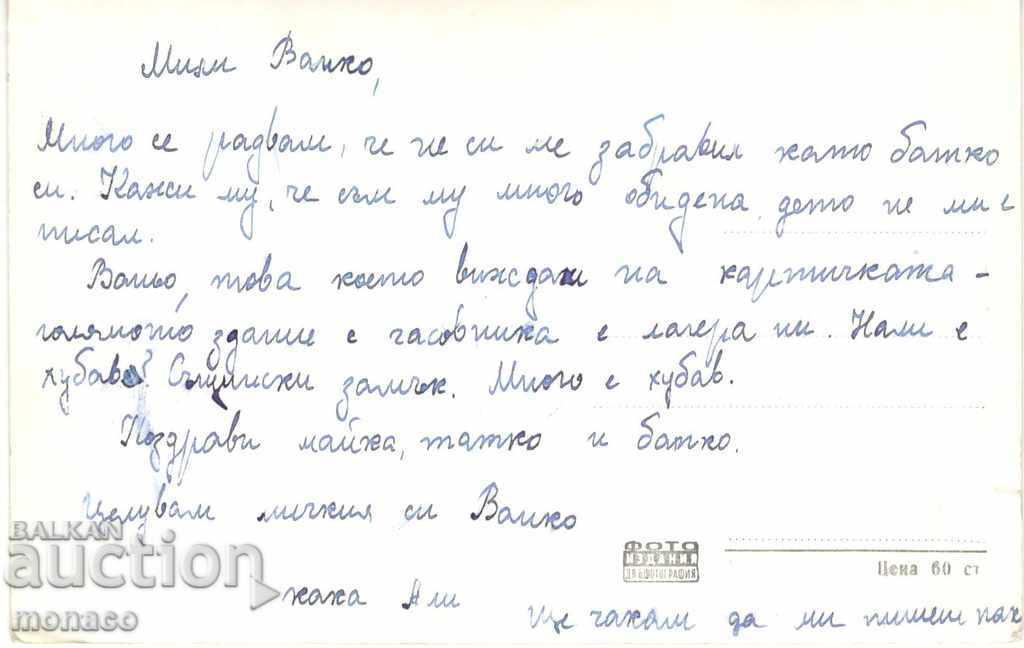 Мили Ванко,
Много се радвам, че не си ме забравил като батко
си. Кажи му, че съм му много обидена, дето не ми е
писал.
Ваньо, това което виждаш на картичката -
голямото здание с часовника е лагера ни. Нали е
хубаво? Същински замък. Много е хубав.
Поздрави майка, татко и батко.
Целувам миличкия си Ванко
кака Ани
Ще чакам да ми пишеш пак
ФОТО
ИЗДАНИЯ
Цена 60 ст
BALKAN
auction
monaco